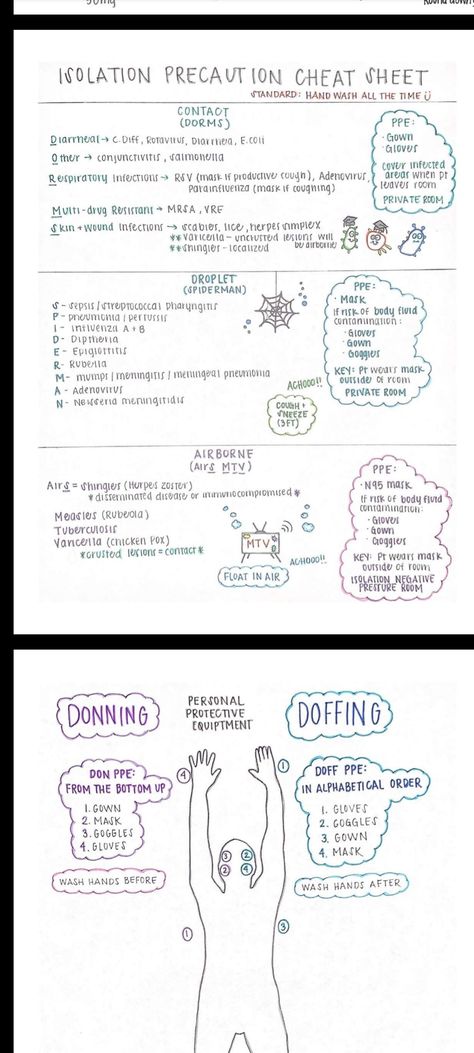 50mg
ISOLATION PRECAUTION CHEAT SHEET
STANDARD: HAND WASH ALL THE TIME
CONTACT
(DORMS)
Diarrheal → C. Diff, Rotavirus, Diarrhea, E.coli
Other → conjunctivitis, salmonella
Respiratory Infections → RSV (mask if productive cough), Adenovirus,
Parainfluenza (mask if coughing)
Multi-drug Resistant → MRSA, VRE
Skin + wound Infections → scabies, lice, herpes simplex
**Varicella - uncrusted lesions will be airborne
**shingles - localized
PPE:
· Gown
· Gloves
cover infected
areas when pt
leaves room
PRIVATE ROOM
DROPLET
(SPIDERMAN)
S - sepsis / streptococcal pharyngitis
P - pneumonia / pertussis
I - influenza A + B
D - Diptheria
E - Epiglottitis
R - Rubella
M - mumps / meningitis / meningeal pneumonia
A - Adenovirus
N - Neisseria meningitidis
ACHOOO!!
COUGH +
SNEEZE
(3FT)
PPE:
· Mask
If risk of body fluid
contamination:
· Gloves
· Gown
· Goggles
KEY: Pt wears mask
outside of room
PRIVATE ROOM
AIRBORNE
(AirS MTV)
AirS = Shingles (Herpes zoster)
*disseminated disease or immunocompromised*
Measles (Rubeola)
Tuberculosis
Varicella (chicken pox)
*crusted lesions = contact*
MTV
ACHOOO!!
FLOAT IN AIR
PPE:
· N95 mask
If risk of body fluid
contamination:
· Gloves
· Gown
· Goggles
KEY: Pt wears mask
outside of room
ISOLATION NEGATIVE
PRESSURE ROOM
DONNING
PERSONAL
PROTECTIVE
EQUIPTMENT
DOFFING
DON PPE:
FROM THE BOTTOM UP
1. GOWN
2. MASK
3. GOGGLES
4. GLOVES
WASH HANDS BEFORE
4
1
3
2
2
4
1
3
DOFF PPE:
IN ALPHABETICAL ORDER
1. GLOVES
2. GOGGLES
3. GOWN
4. MASK
WASH HANDS AFTER